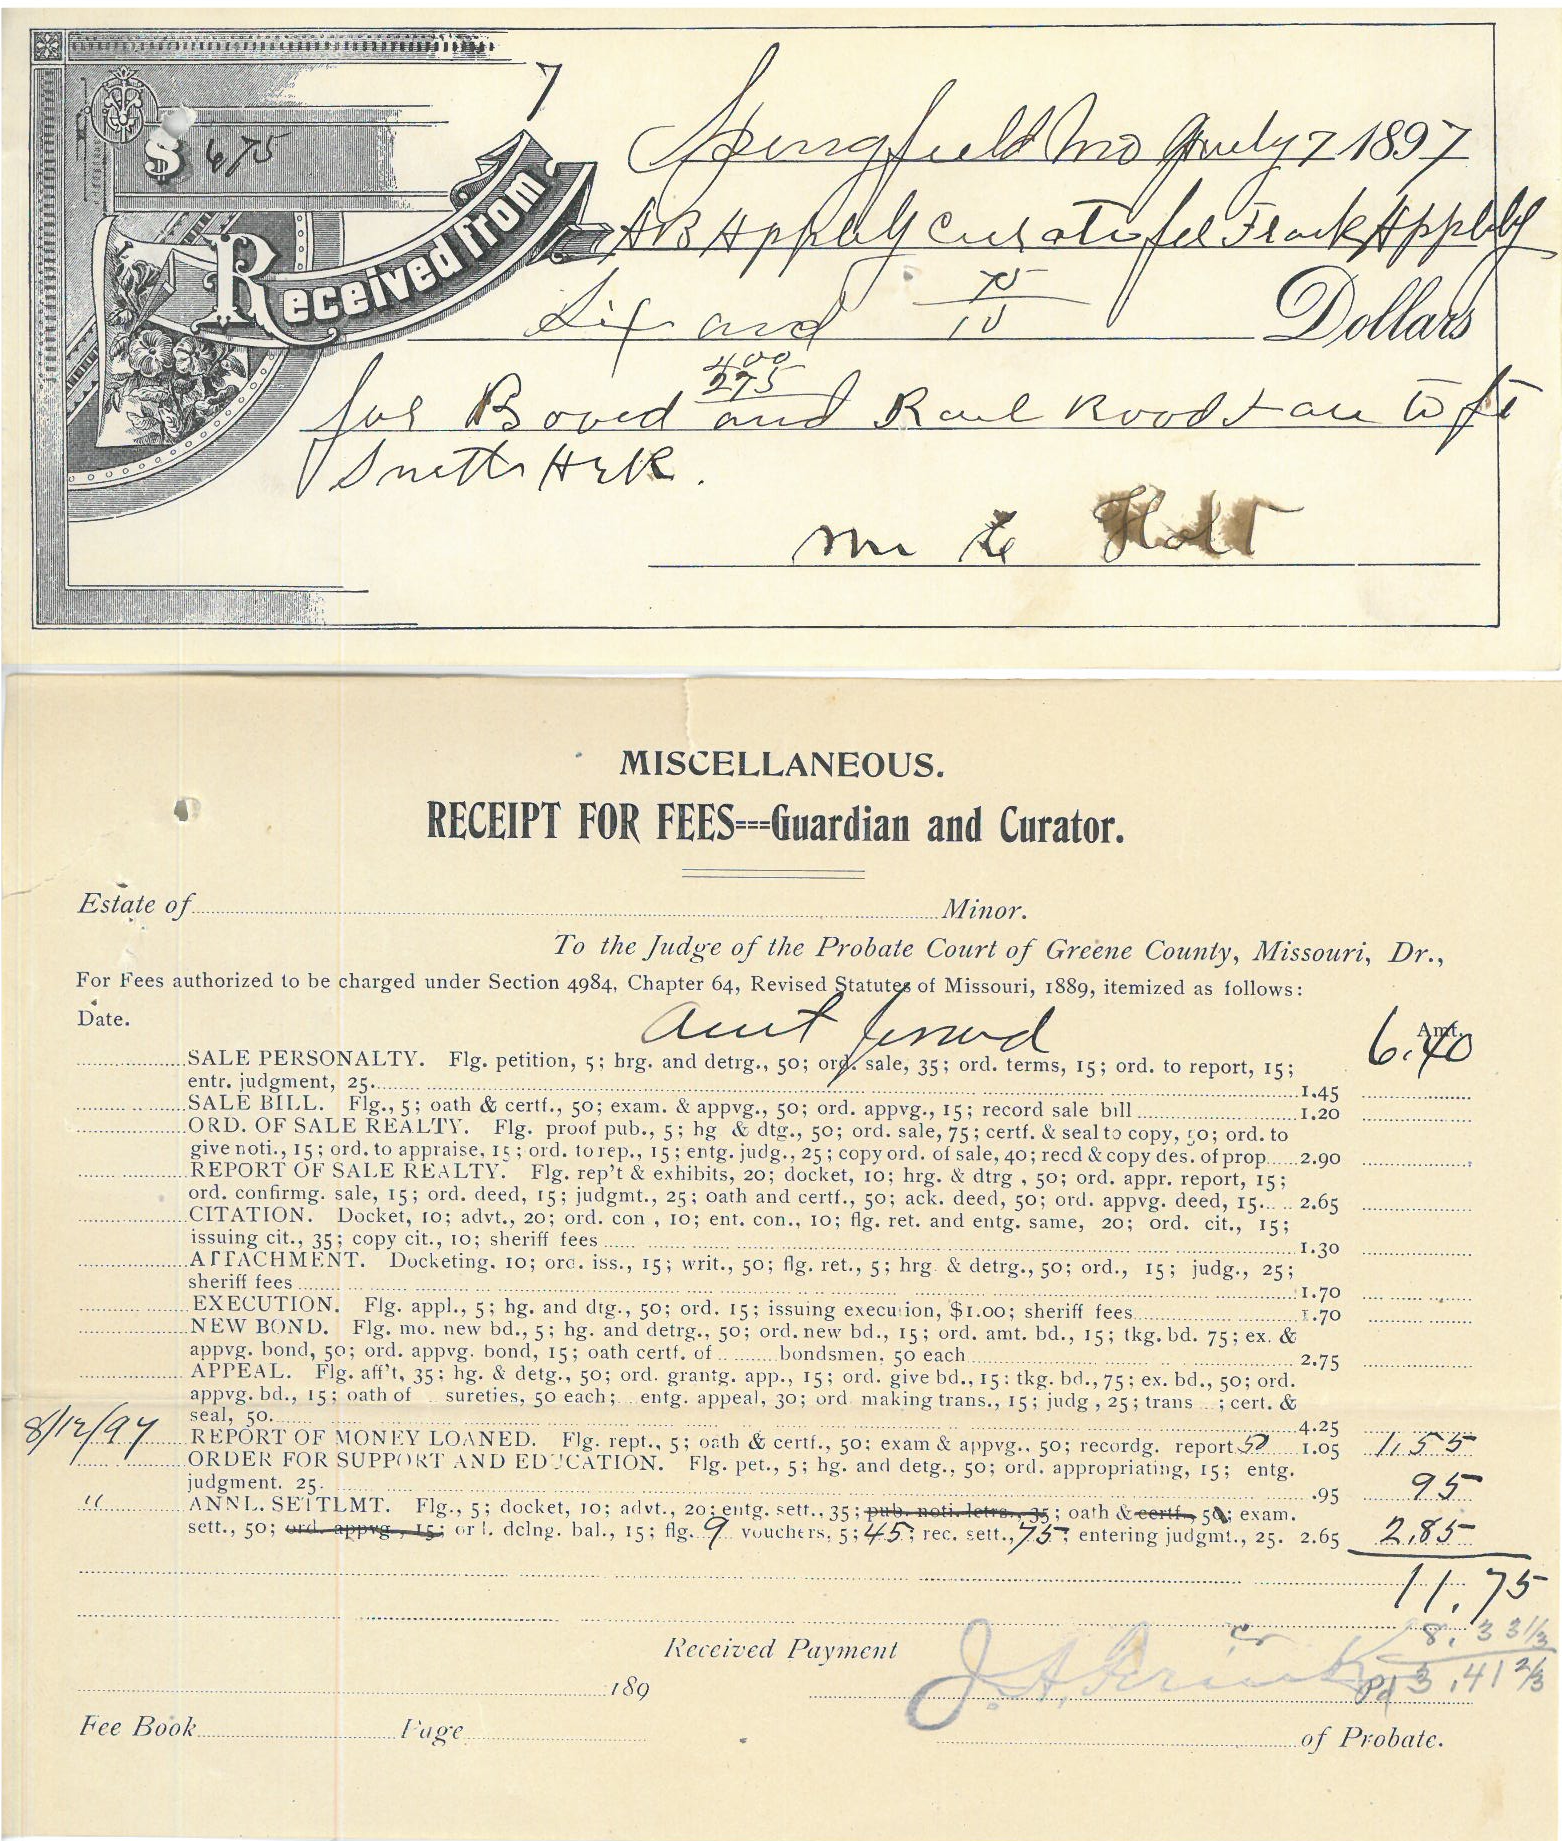 7
$ 675
Springfield Mo July 7 1897
Received from AB Appleby Curator for Frank Appleby
Six and 75/10 Dollars
400
275
for Board and Rail Road Fare to ft
Smith Ark.
Holt
MISCELLANEOUS.
RECEIPT FOR FEES===Guardian and Curator.
Estate of Minor.
To the Judge of the Probate Court of Greene County, Missouri, Dr.,
For Fees authorized to be charged under Section 4984, Chapter 64, Revised Statutes of Missouri, 1889, itemized as follows:
Date. Amt.
Amt forwd 6.40
SALE PERSONALTY. Flg. petition, 5; hrg. and detrg., 50; ord. sale, 35; ord. terms, 15; ord. to report, 15;
entr. judgment, 25. 1.45
SALE BILL. Flg., 5; oath & certf., 50; exam. & appvg., 50; ord. appvg., 15; record sale bill 1.20
ORD. OF SALE REALTY. Flg. proof pub., 5; hg & dtg., 50; ord. sale, 75; certf. & seal to copy, 50; ord. to
give noti., 15; ord. to appraise, 15; ord. to rep., 15; entg. judg., 25; copy ord. of sale, 40; recd & copy des. of prop 2.90
REPORT OF SALE REALTY. Flg. rep't & exhibits, 20; docket, 10; hrg. & dtrg, 50; ord. appr. report, 15;
ord. confirmg. sale, 15; ord. deed, 15; judgmt., 25; oath and certf., 50; ack. deed, 50; ord. appvg. deed, 15. 2.65
CITATION. Docket, 10; advt., 20; ord. con, 10; ent. con., 10; flg. ret. and entg. same, 20; ord. cit., 15;
issuing cit., 35; copy cit., 10; sheriff fees 1.30
ATTACHMENT. Docketing, 10; ord. iss., 15; writ., 50; flg. ret., 5; hrg & detrg., 50; ord., 15; judg., 25;
sheriff fees 1.70
EXECUTION. Flg. appl., 5; hg. and dtg., 50; ord. 15; issuing execution, $1.00; sheriff fees 1.70
NEW BOND. Flg. mo. new bd., 5; hg. and detrg., 50; ord. new bd., 15; ord. amt. bd., 15; tkg. bd. 75; ex. &
appvg. bond, 50; ord. appvg. bond, 15; oath certf. of bondsmen, 50 each 2.75
APPEAL. Flg. aff't, 35; hg. & detg., 50; ord. grantg. app., 15; ord. give bd., 15; tkg. bd., 75; ex. bd., 50; ord.
appvg. bd., 15; oath of sureties, 50 each; entg. appeal, 30; ord making trans., 15; judg, 25; trans ; cert. &
seal, 50. 4.25
8/12/97 REPORT OF MONEY LOANED. Flg. rept., 5; oath & certf., 50; exam & appvg., 50; recordg. report 50 1.05 1.55
ORDER FOR SUPPORT AND EDUCATION. Flg. pet., 5; hg. and detg., 50; ord. appropriating, 15; entg.
judgment. 25. .95 95
" ANNL. SETTLMT. Flg., 5; docket, 10; advt., 20; entg. sett., 35; pub. noti. letrs., 35; oath & certf., 50; exam.
sett., 50; ord. appvg., 15; or l. dclng. bal., 15; flg. 9 vouchers, 5; 45; rec. sett., 75; entering judgmt., 25. 2.65 2.85
11.75
8.33 1/3
Received Payment
Pd 3.41 2/3
189
Fee Book Page of Probate.